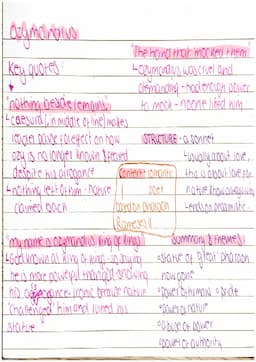 Ozymandias
Key quotes:
"nothing beside remains"
↳ caesura (, in middle of line) makes
reader pause for effect on how
ozy is no longer known & feared
despite his arrogance
↳ nothing left of him - nature
claimed back
"my name is ozymandias king of kings"
↳ God known as king of kings - so saying
he is more powerful than god - showing
his arrogance. Ironic because nature
'challenged' him and ruined his
statue
"The hand that mocked them"
↳ ozymandias was cruel and
demanding - had enough power
to mock - no one liked him
STRUCTURE - a sonnet
↳ usually about love,
this is about love for
↳ ends on
Context: romantic
poet
based on pharaoh
Rameses II
Summary & themes:
•statue of 'great' pharaoh
now gone
•power of humans & pride
•power of nature
•abuse of power
•power of authority